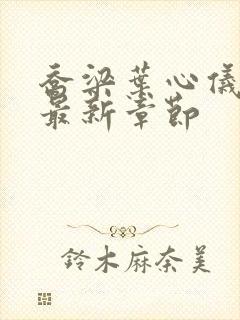 乔梁叶心儀
最新章節
鈴木麻奈美